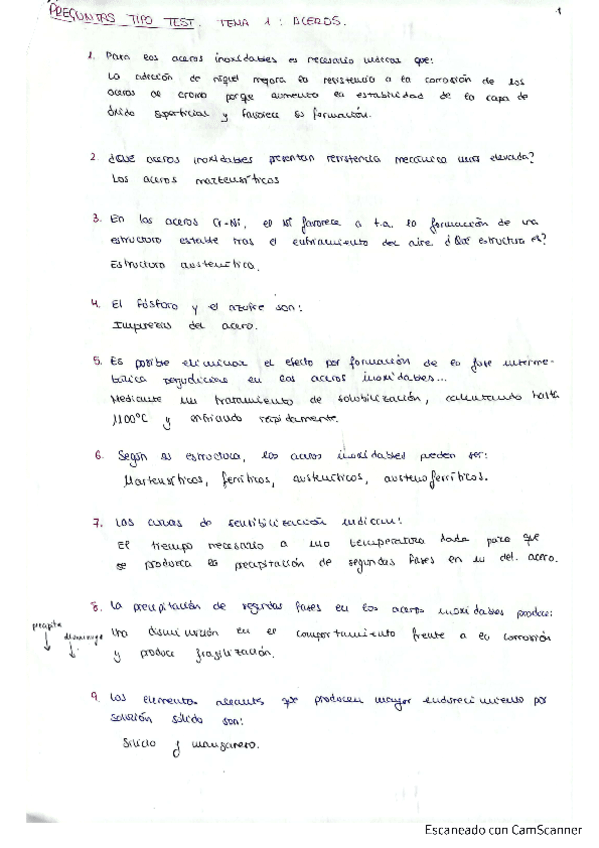 PREGUNTAS TIPO TEST. TEMA 1: ACEROS.
1
1. Para los aceros inoxidables es necesario indicar que:
La adición de níquel mejora la resistencia a la corrosión de los
aceros al cromo porque aumenta la estabilidad de la capa de
óxido superficial y favorece su formación.
2. ¿Qué aceros inoxidables presentan resistencia mecánica más elevada?
Los aceros martensíticos
3. En los aceros Cr-Ni, el Ni favorece a t.a. la formación de una
estructura estable tras el enfriamiento del aire. ¿Qué estructura es?
Estructura austenítica.
4. El fósforo y el azufre son:
Impurezas del acero.
5. Es posible eliminar el efecto por formación de la fase interme-
tálica perjudicial en los aceros inoxidables...
Mediante un tratamiento de solubilización, calentando hasta
1100°C y enfriando rápidamente.
6. Según su estructura, los aceros inoxidables pueden ser:
Martensíticos, ferríticos, austeníticos, austenoferríticos.
7. Las curvas de sensibilización indican:
El tiempo necesario a una temperatura dada para que
se produzca la precipitación de segundas fases en la del. acero.
8. La precipitación de segundas fases en los aceros inoxidables produce:
precipita
disminuye
Una disminución en el comportamiento frente a la corrosión
y produce fragilización.
9. Los elementos aleantes que producen mayor endurecimiento por
solución sólida son:
Silicio y manganeso.
Escaneado con CamScanner